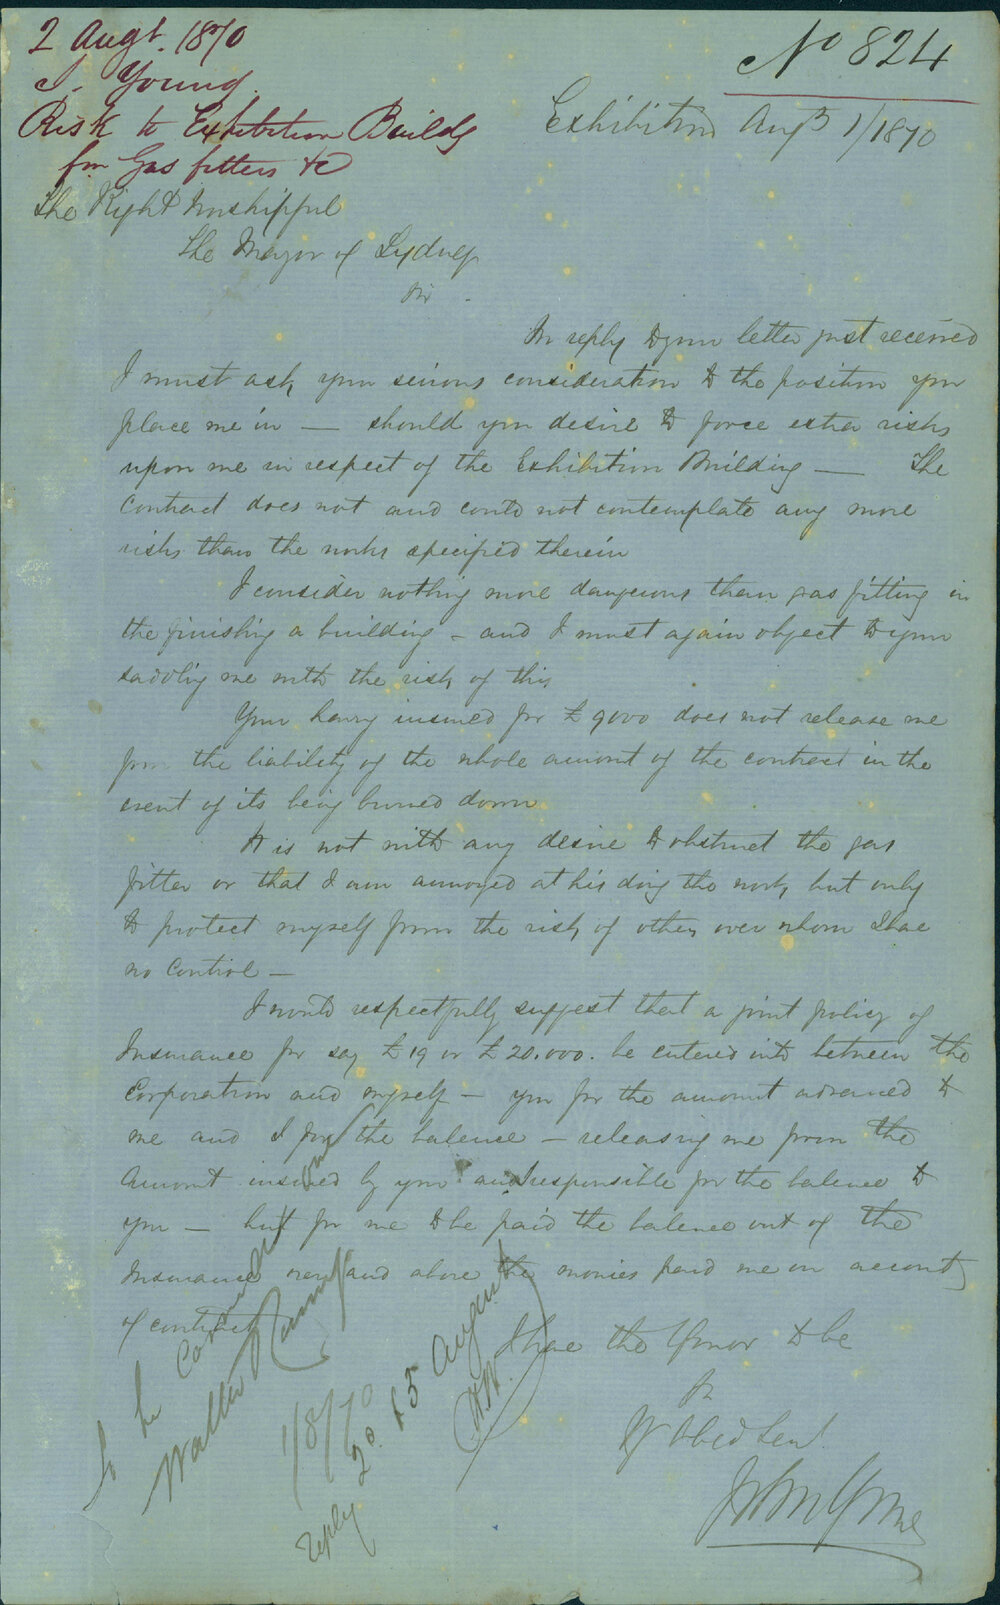 2 Augt. 1870
J. Young
Risk to Exhibition Buildg
from Gas fitters &c
No 824
Exhibition Aug 1/1870
The Right Worshipful
The Mayor of Sydney
Sir
In reply to your letter just received
I must ask your serious consideration to the position you
place me in — should you desire to force extra risks
upon me in respect of the Exhibition Building — The
Contract does not and could not contemplate any more
risks than the works specified therein
I consider nothing more dangerous than gas fitting in
the finishing a building – and I must again object to your
saddling me with the risk of this
Your having insured for £9000 does not release me
from the liability of the whole amount of the contract in the
event of its being burned down
It is not with any desire to obstruct the gas
fitter or that I am annoyed at his doing the work, but only
to protect myself from the risk of others over whom I have
no control —
I would respectfully suggest that a joint policy of
Insurance for say £19 or £20.000. be entered into between the
Corporation and myself – you for the amount advanced to
me and I for the balance – releasing me from the
Amount insured by you and responsible for the balance to
you — but for me to be paid the balance out of the
Insurance over and above the monies paid me on account
of contract
I have the honor to be
Sir
Yr Obed Sert
John Young
To the Committee
Walter Renny
1/8/70
reply 2d & 5 August